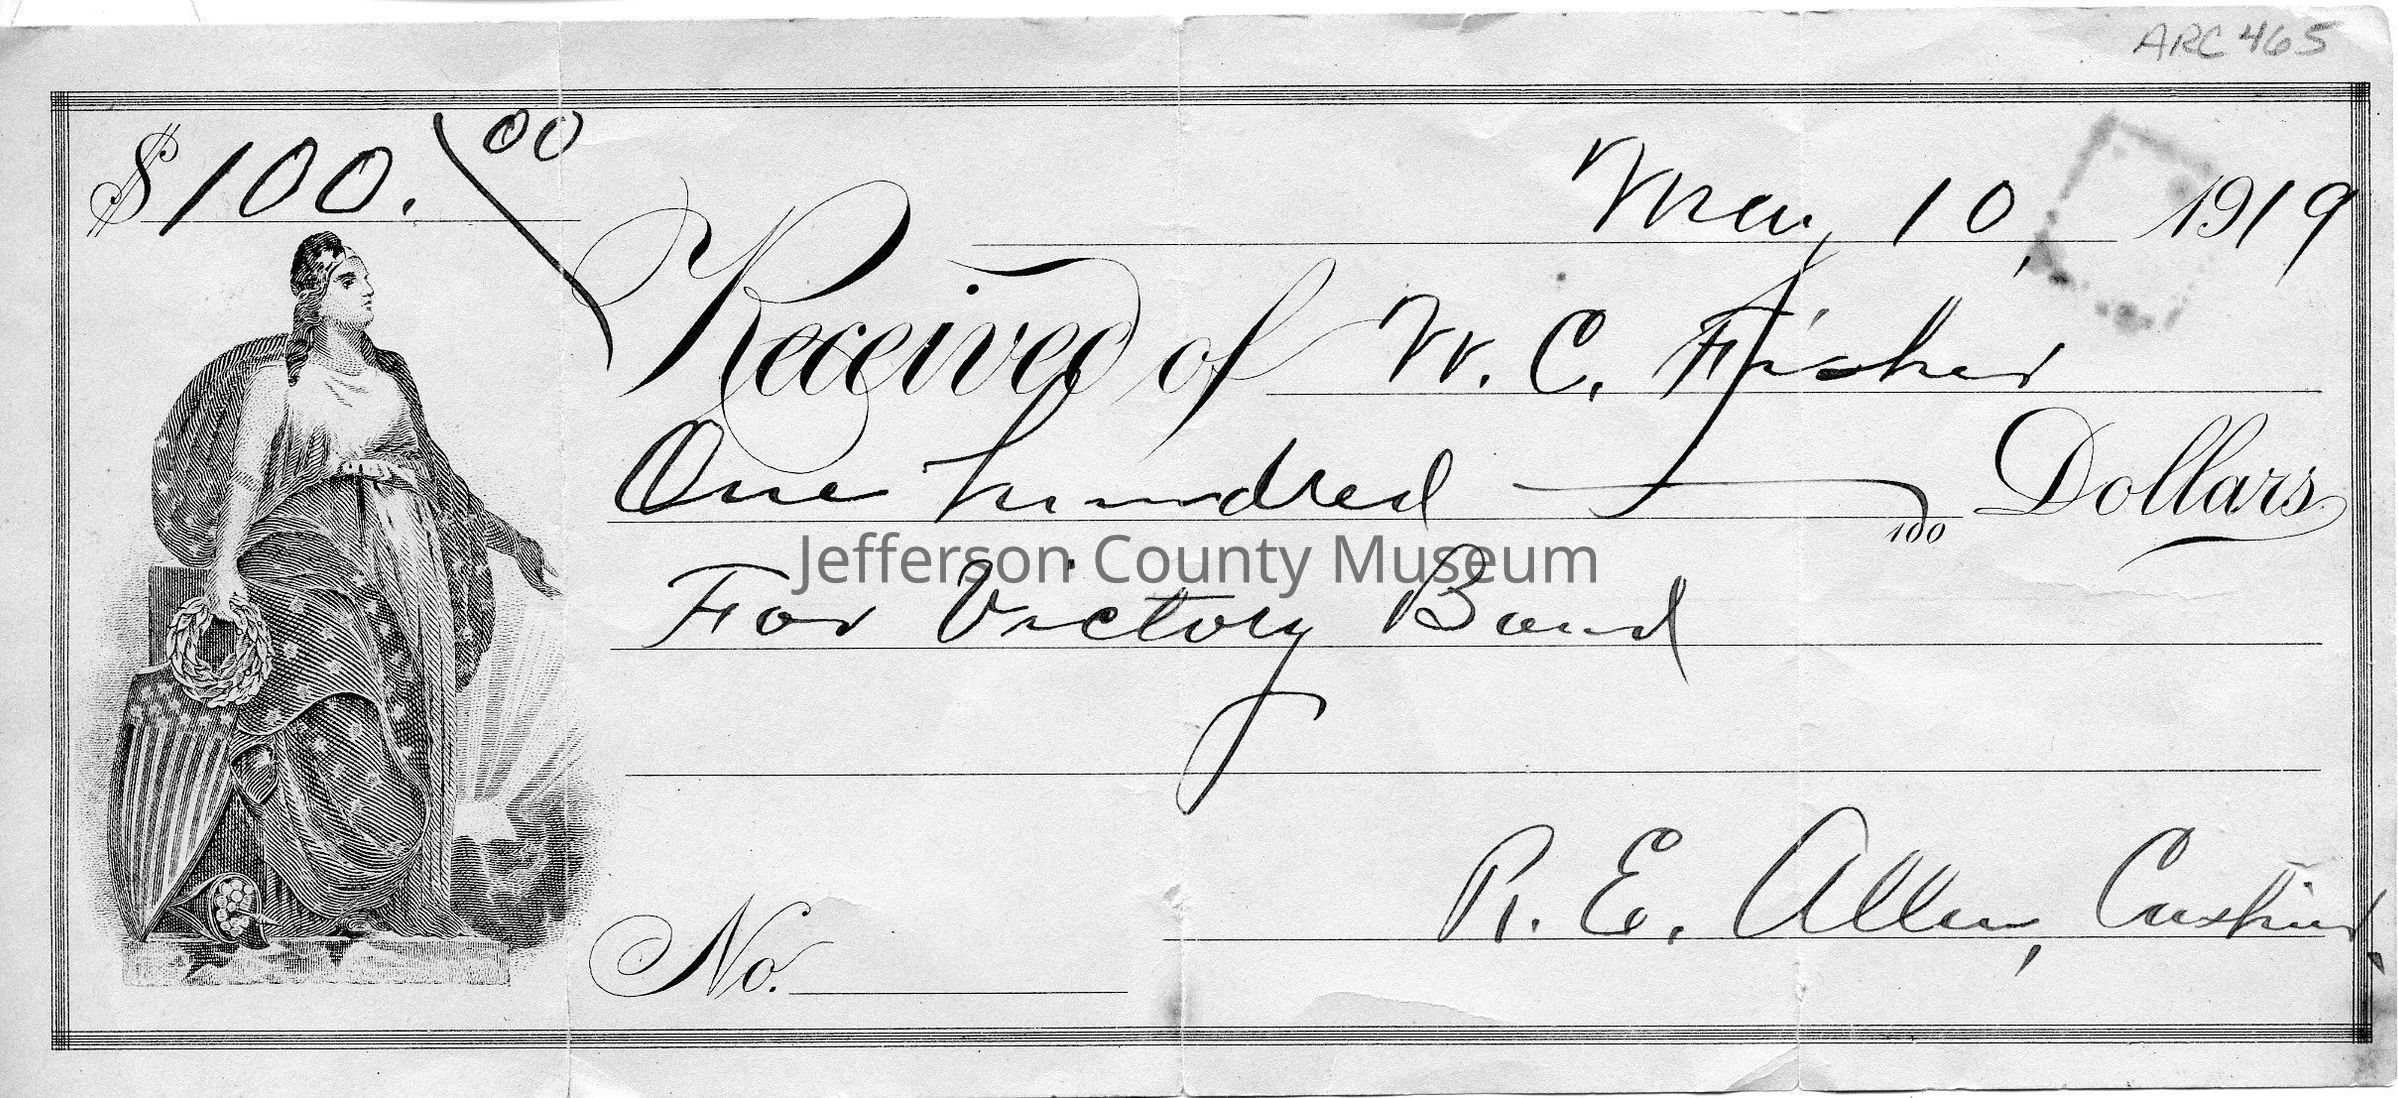 ARC 465
$100.00
May 10, 1919
Received of W. C. Fisher
One hundred 100 Dollars
Jefferson County Museum
For Victory Bond
R. E. Allen, Cashier.
No.